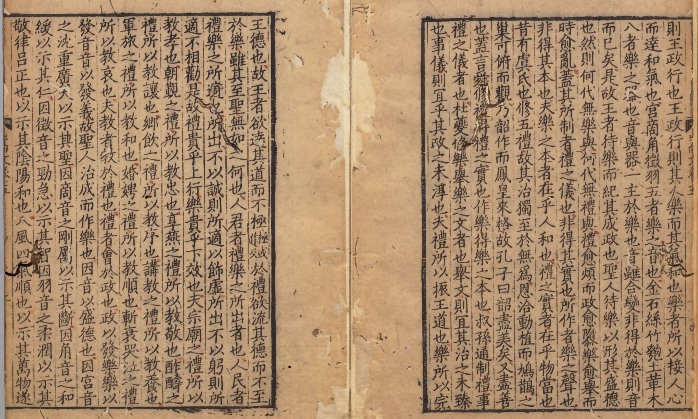 則王政行也王政行則其人樂而其氣和也樂者所以接人心
而達和氣也宮啇角徵羽五者樂之音也金石絲竹匏土革木
八者樂之器也音與器一主於樂也音雖合變非得於樂則音
而已矣是故王者待樂而紀其成政也聖人待樂以形其盛德
也然則何代無樂與何代無禮與禮愈煩而政愈隳樂愈舉而
時愈亂蓋其所制者禮之儀也非得其實也所作者樂之聲也
非得其本也夫樂之本者在乎人和也禮之實者在乎物當也
昔有虞氏也修五禮故其治獨至於無為恩洽動植而鳥鵲之
巢可俯而觀乃韶作而鳳凰來格故孔子曰韶盡美矣又盡善
也蓋言舜修禮得禮之實也作樂得樂之本也叔孫通制禮事
禮之儀者也杜夔修樂舉樂之文者也舉文則宜其治之未臻
也事儀則宜乎其政之未淳也夫禮所以振王道也樂所以完
王德也故王者欲達其道而不極於禮欲流其德而不至
於樂雖其至聖無如之何也人君者禮樂之所出者也人民者
禮樂之所適也所出不以誠則所適以飾虛所出不以躬則所
適不相勸是故禮貴乎上行樂貴乎下效也夫宗廟之禮所以
教孝也朝覲之禮所以教忠也享燕之禮所以教敬也酢醻之
禮所以教讓也鄉飲之禮所以教序也講教之禮所以教養也
軍旅之禮所以教和也婚娉之禮所以教順也斬衰哭泣之禮
所以教哀也夫教者教於禮也禮者會於政也政以發樂樂以
發音音以發義故聖人治成而作樂也因音以盛德也因宮音
之沈重廣大以示其聖因啇音之剛厲以示其斷因角音之和
緩以示其仁因徵音之勁急以示其智因羽音之柔潤以示其
敬律呂正也以示其陰陽和也八風四氣順也以示其萬物遂